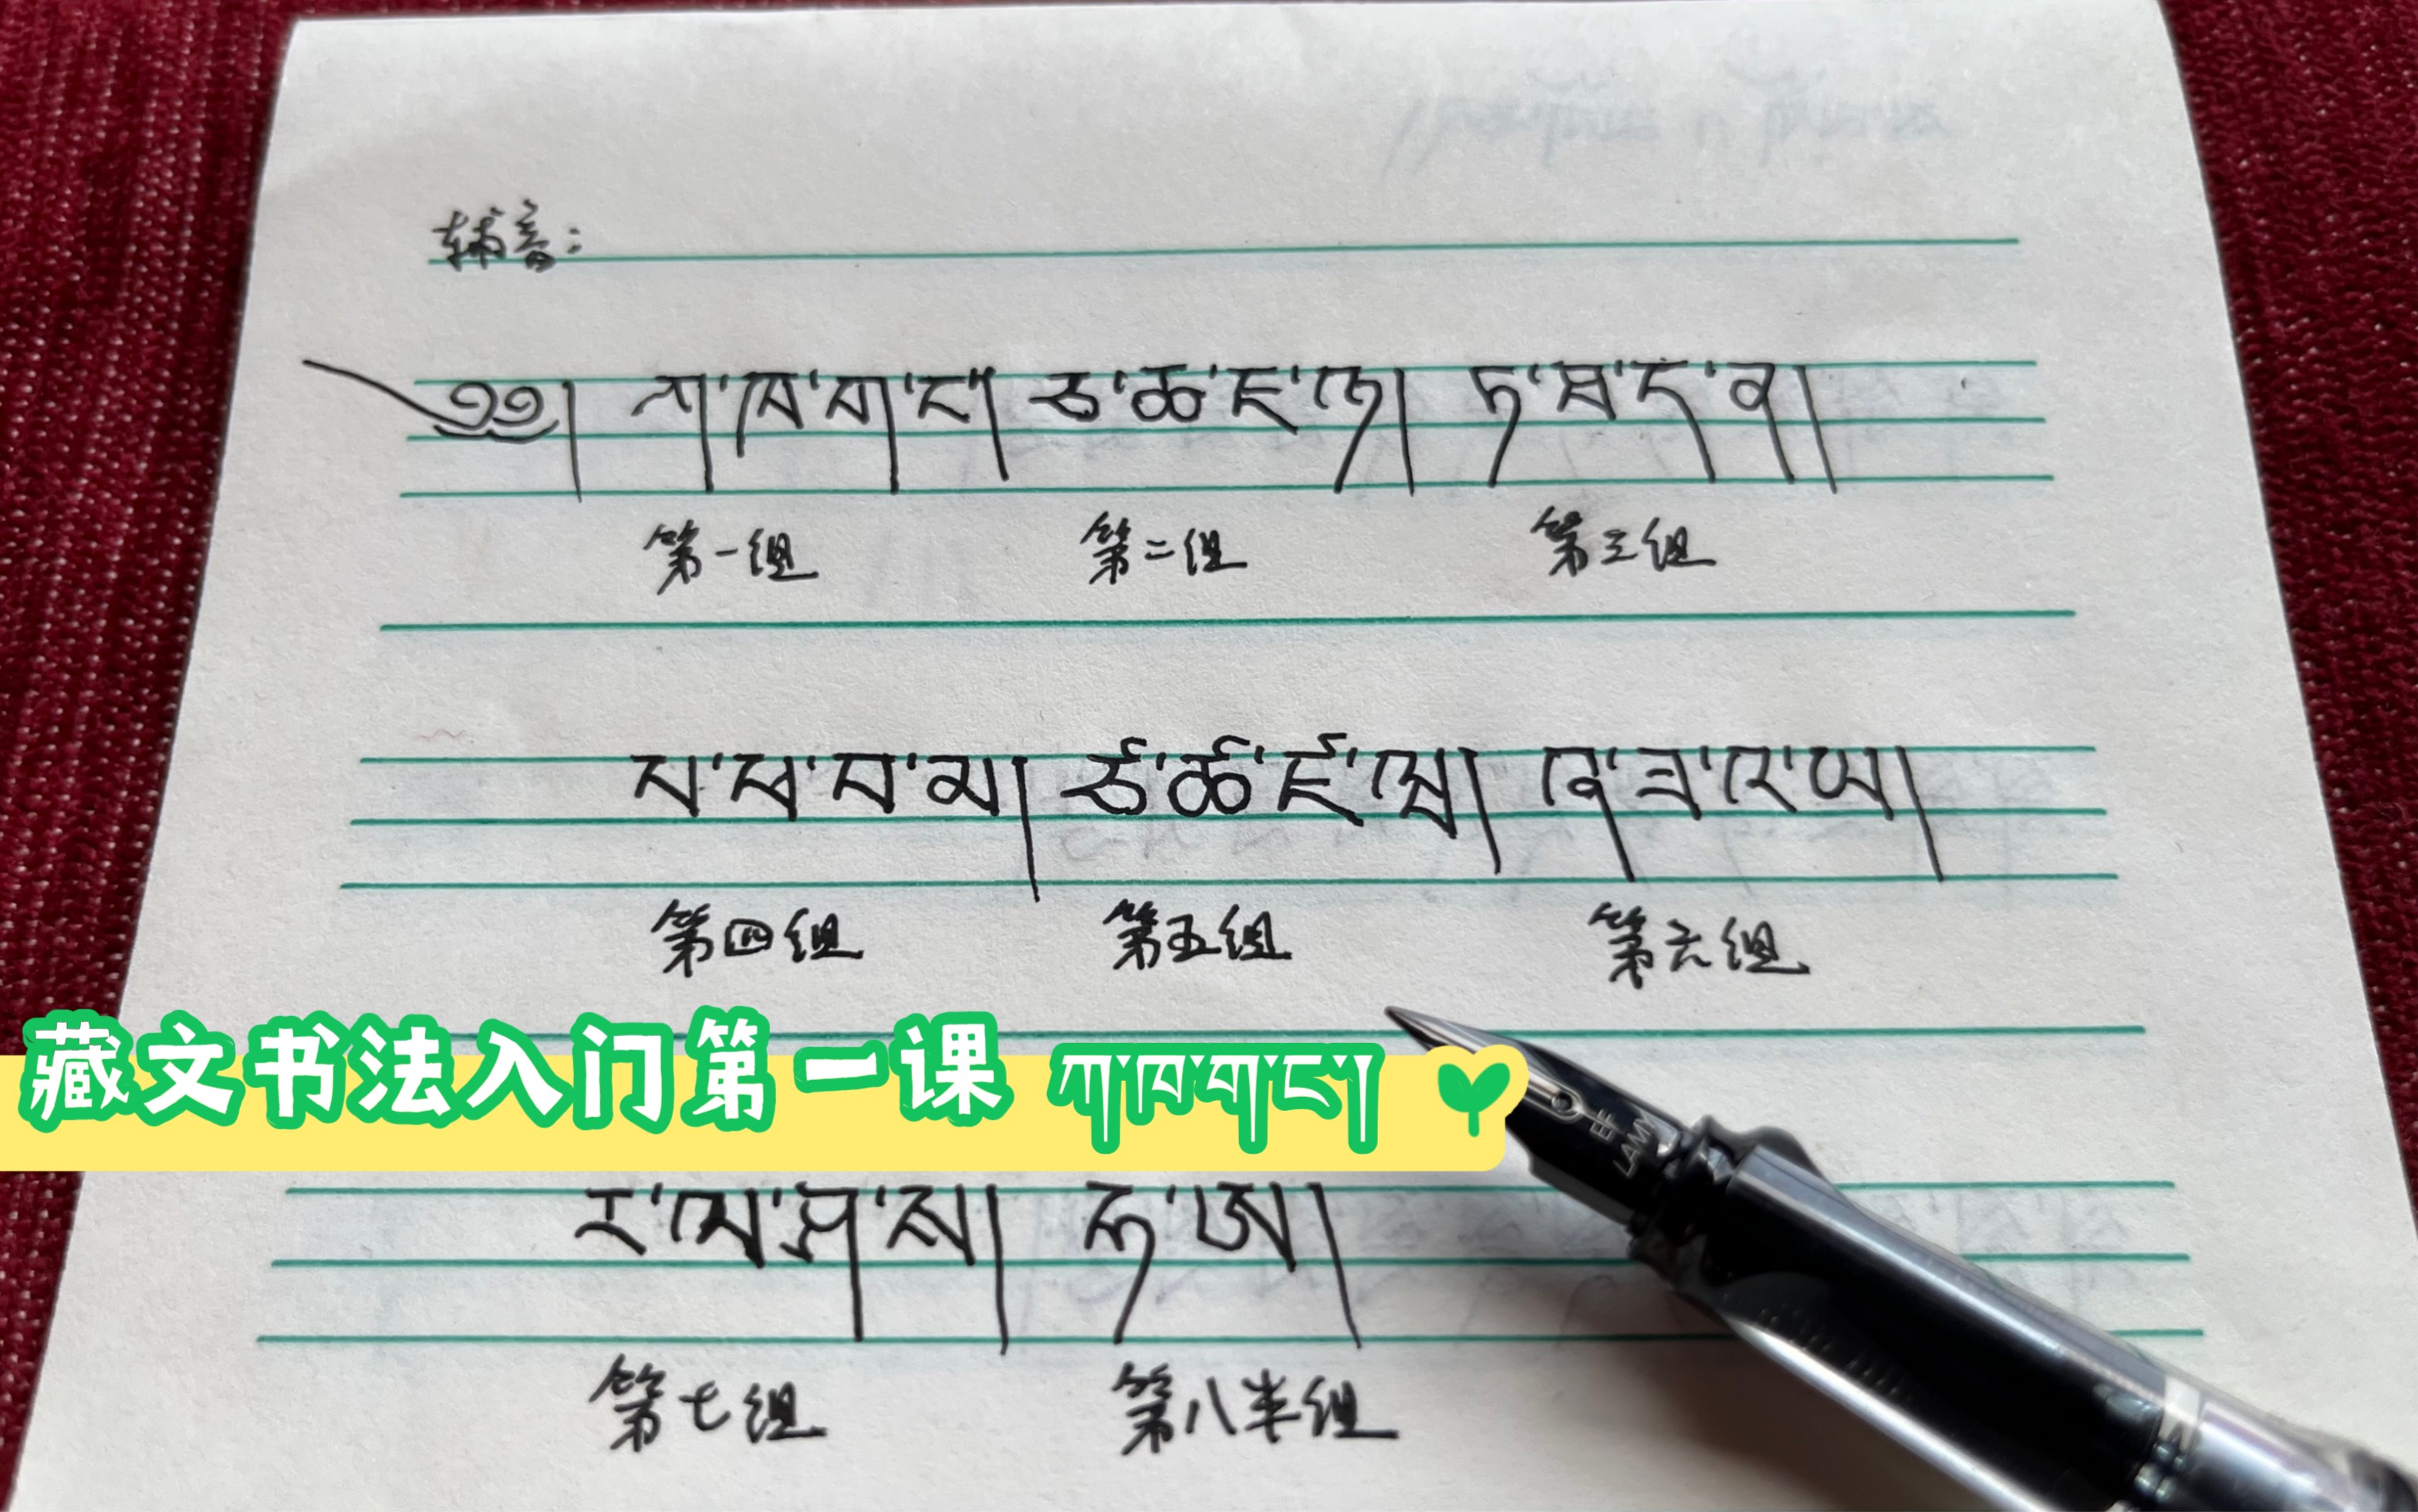 辅音:
༄༅། ཀ་ཁ་ག་ང་། ཅ་ཆ་ཇ་ཉ། ཏ་ཐ་ད་ན།
第一组 第二组 第三组
པ་ཕ་བ་མ། ཙ་ཚ་ཛ་ཝ། ཞ་ཟ་འ་ཡ།
第四组 第五组 第六组
藏文书法入门第一课 ཀ་ཁ་ག་ང་།
EF
LAMY
ར་ལ་ཤ་ས། ཧ་ཨ།
第七组 第八半组